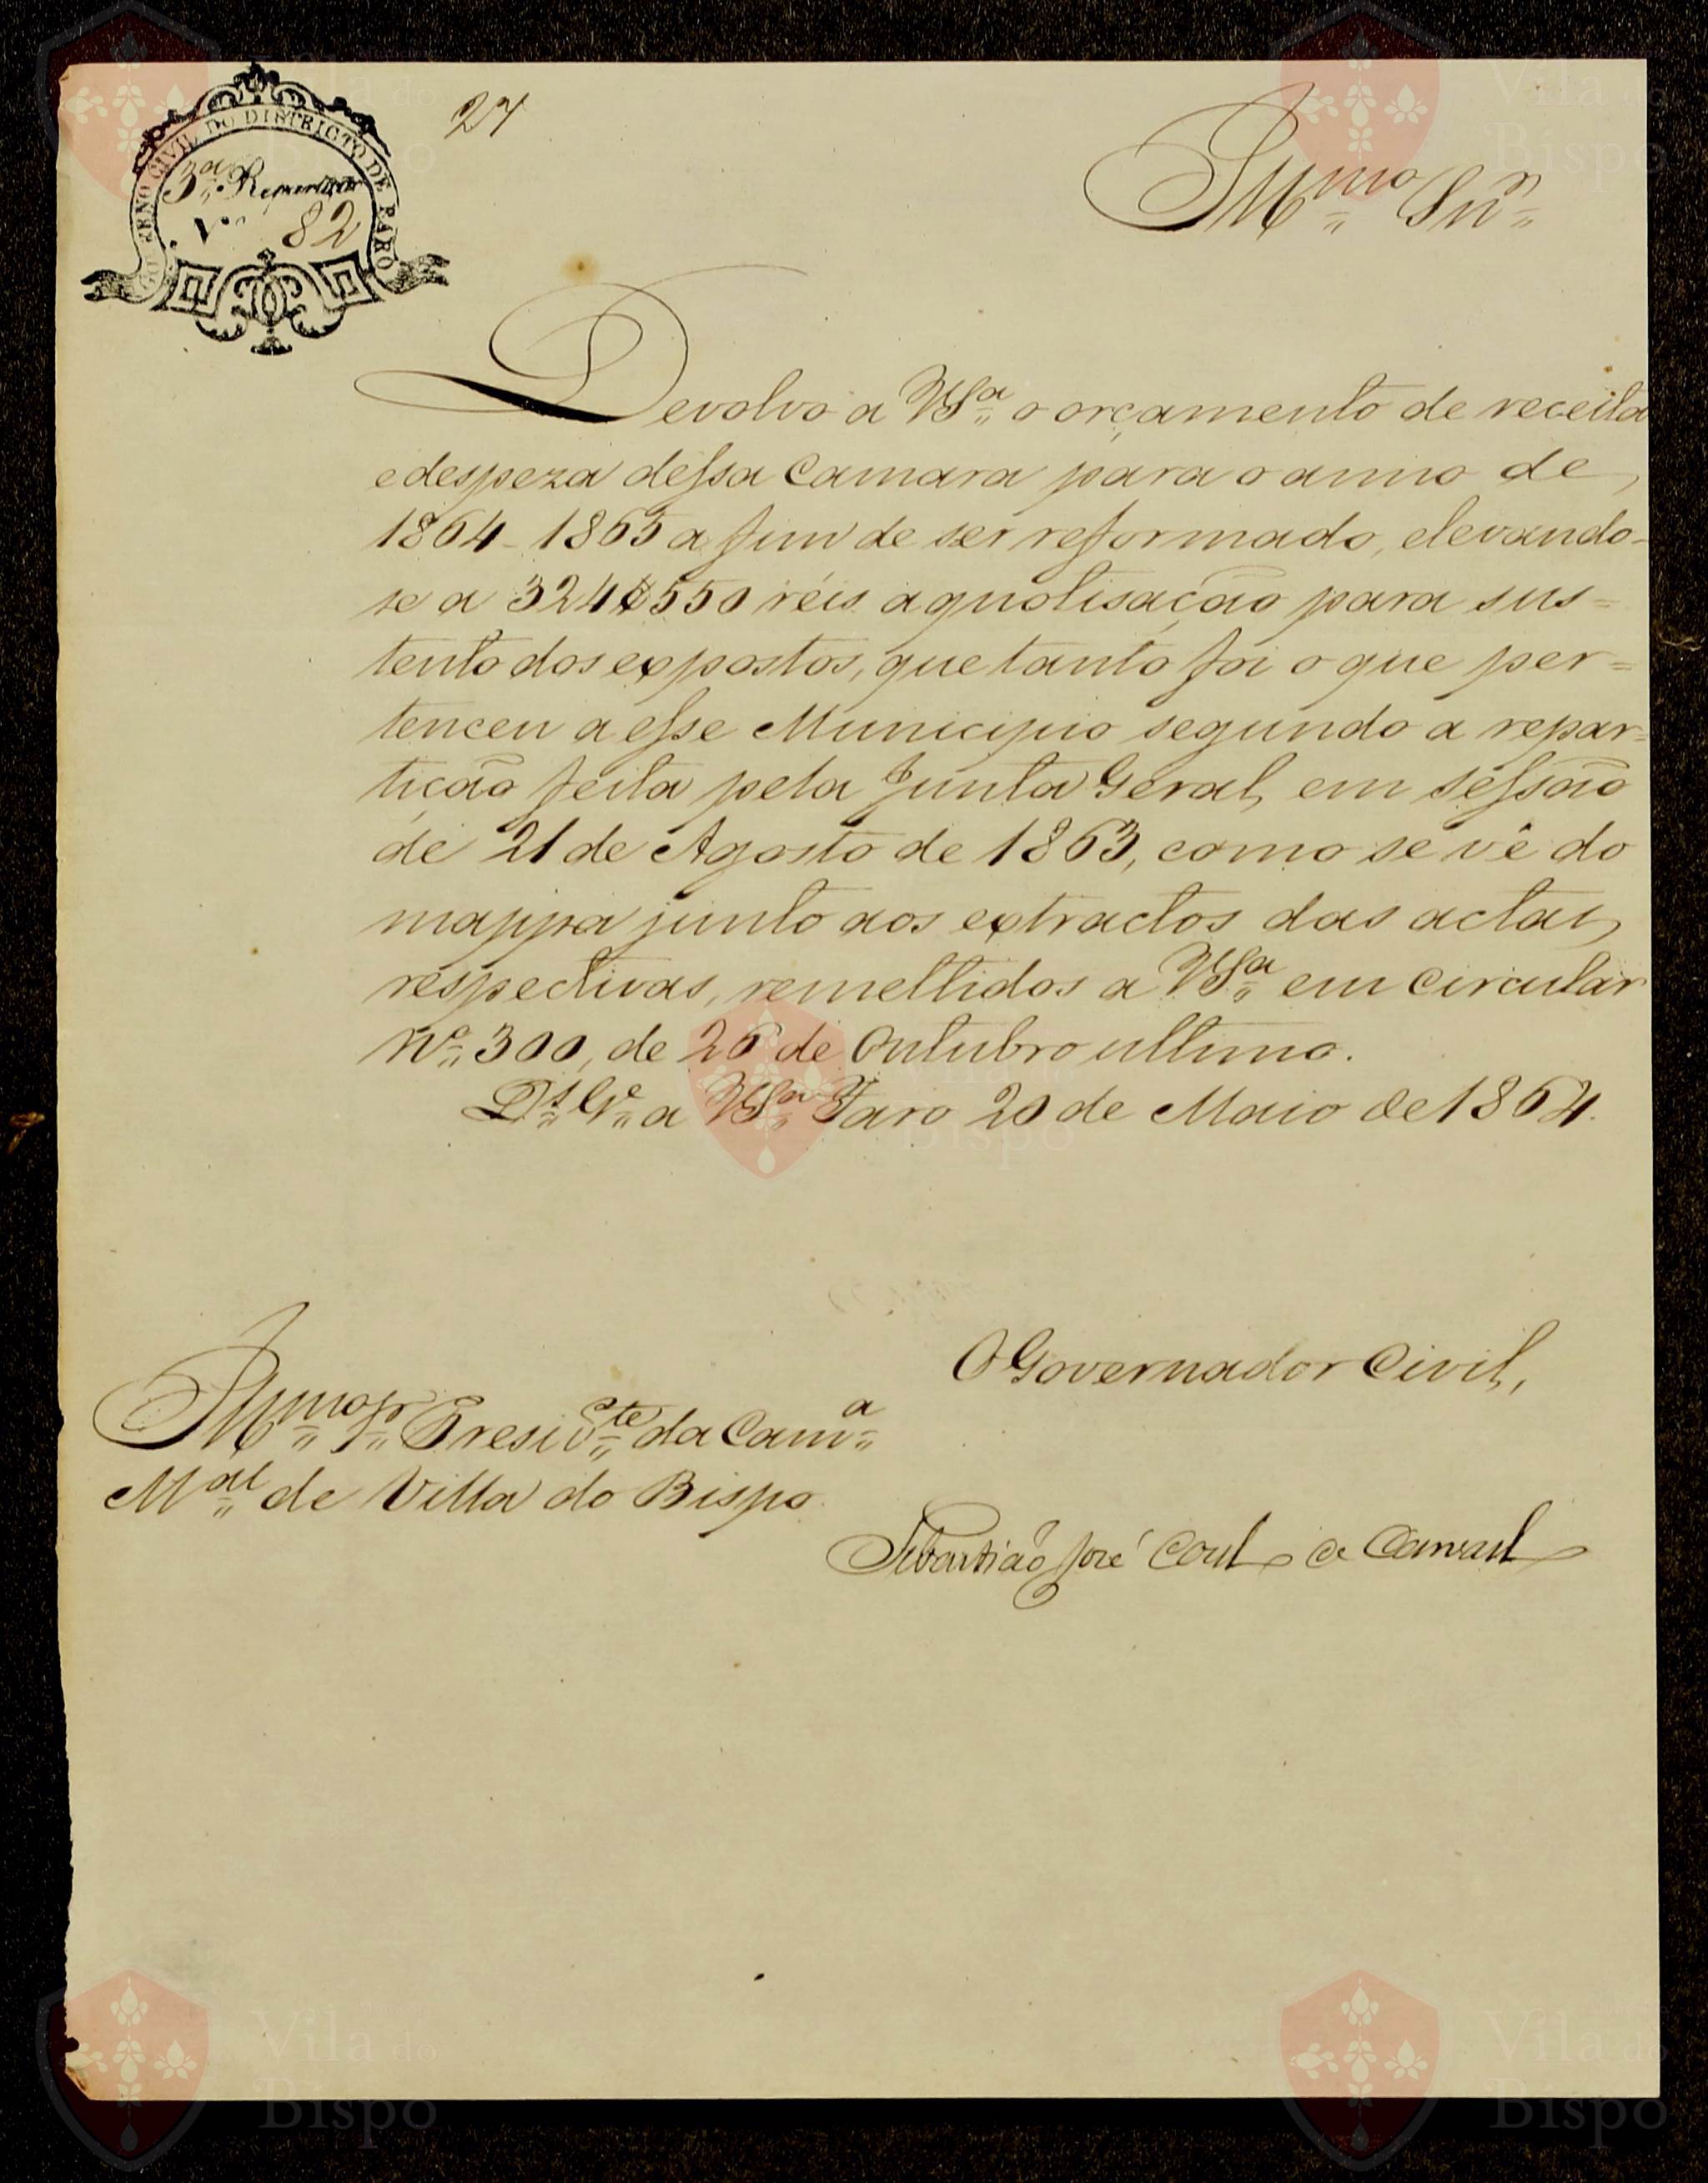 GOVERNO CIVIL DO DISTRICTO DE FARO
3.ª Repartição
N.º 82
27
Illmo Snr
Devolvo a VSª o orçamento de receita
e despeza dessa Camara para o anno de
1864-1865 a fim de ser reformado, elevando-
se a 324$550 réis a quotisação para sus=
tento dos expostos, que tanto foi o que per=
tenceu a esse Municipio segundo a repar=
tição feita pela Junta Geral, em sessão
de 21 de Agosto de 1863, como se vê do
mappa junto aos extractos das actas
respectivas, remettidos a VSª em circular
Nº 300, de 26 de Outubro ultimo.
Ds Ge a VSª Faro 20 de Maio de 1864.
O Governador Civil,
Illmo Sr Preside.te da Camª
Mal de Villa do Bispo.
Sebastião José Coelho de Carvalho
Vila do
Bispo